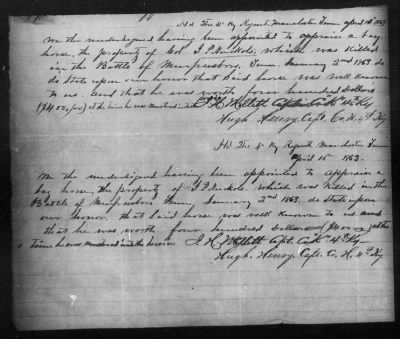 Hd Qrs 4th Ky Regmt, Manchester Tenn April 15th 1863
We the undersigned having been appointed to appraise a bay
horse, the property of Col. T. P. Nicholas, which was killed
in the Battle of Murfreesboro, Tenn January 2nd 1863 do
do state upon our honor that said horse was well known
to us. and that he was worth four hundred Dollars
($400,00) at the time he was mustered into
Capt. Co. K. 4th Ky
Hugh Henry, Capt. Co. H. 4th Ky
Hd Qrs 4th Ky Regmt Manchester Tenn
April 15th 1863.
We the undersigned having been appointed to appraise a
bay horse, the property of which was killed in the
Battle of Murfreesboro Tenn, January 2nd 1863. do state upon
our honor. that said horse was well known to us and
that he was worth four hundred Dollars at the
time he was mustered into the service Capt. Co. K 4th Ky
Hugh. Henry, Capt. Co. H, 4th Ky